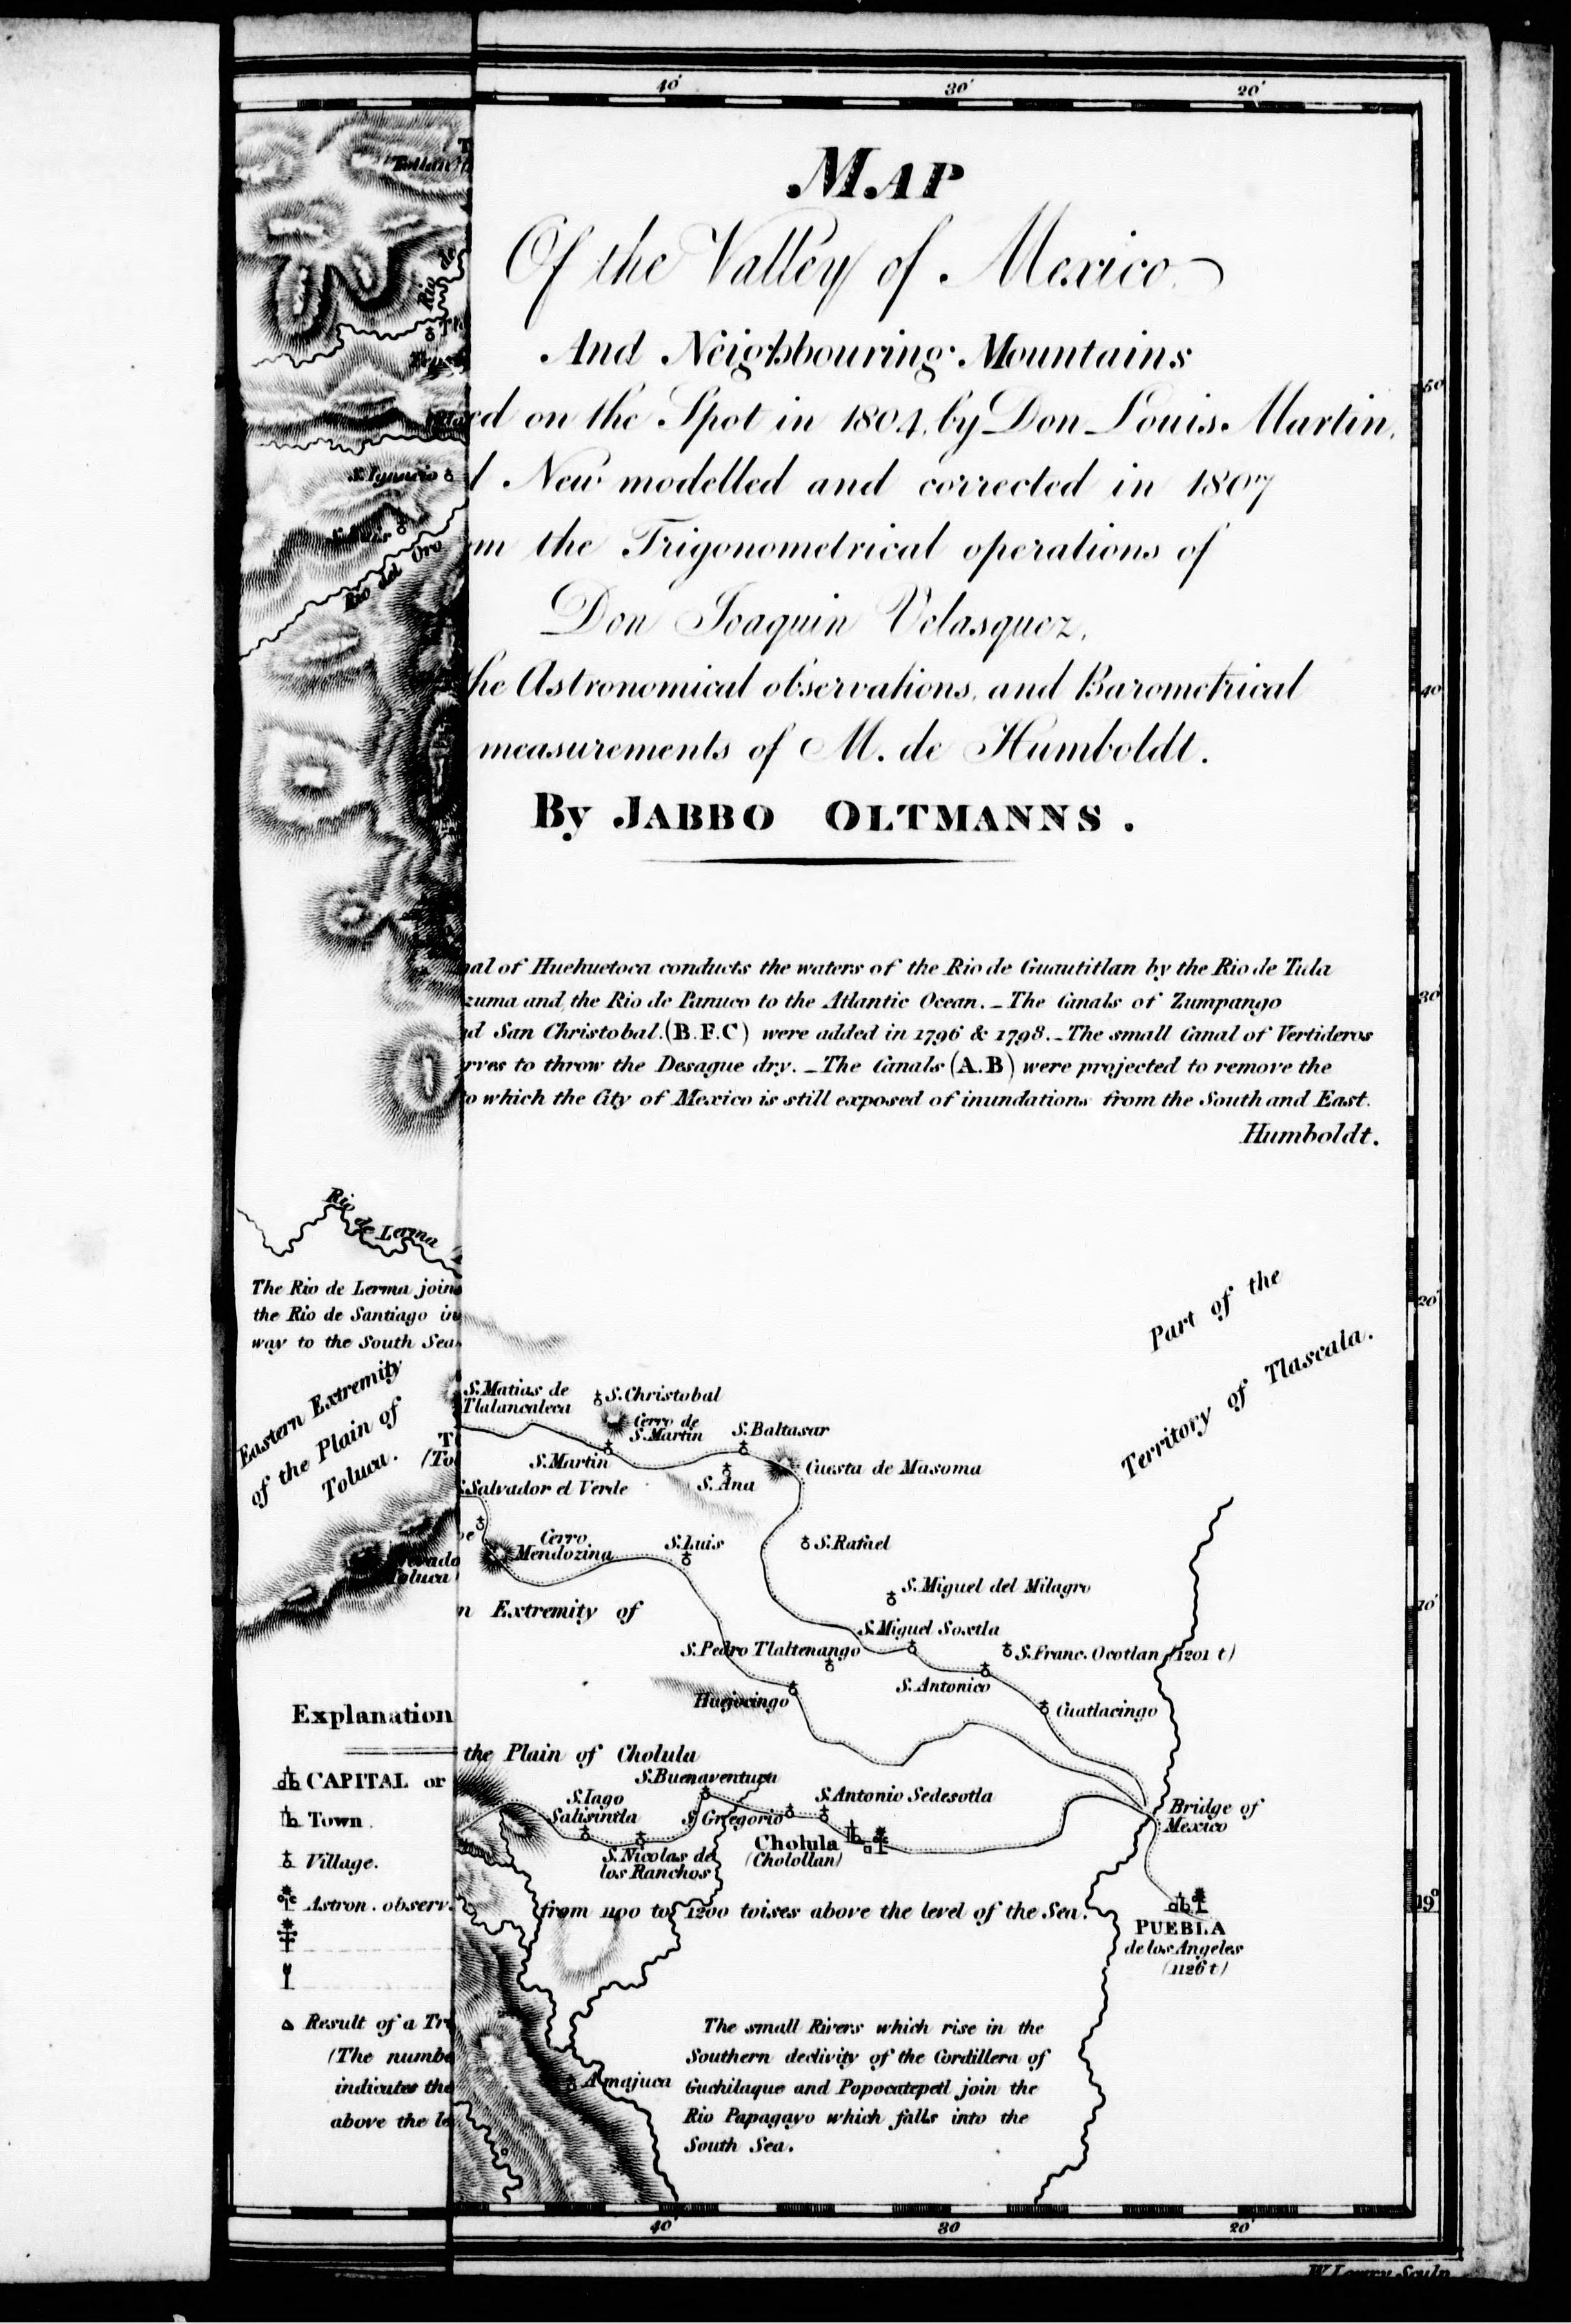 40' 30' 20'
MAP
Of the Valley of Mexico
And Neighbouring Mountains
on the Spot in 1804, by Don Louis Martin,
New modelled and corrected in 1807
the Trigonometrical operations of
Don Joaquin Velasquez,
he Astronomical observations, and Barometrical
measurements of M. de Humboldt.
By JABBO OLTMANNS.
al of Huehuetoca conducts the waters of the Rio de Guautitlan by the Rio de Tula
zuma and, the Rio de Panuco to the Atlantic Ocean. _ The Canals of Zumpango
d San Christobal. (B.F.C) were added in 1796 & 1798. _ The small Canal of Vertideros
rves to throw the Desague dry. _ The Canals (A.B) were projected to remove the
o which the City of Mexico is still exposed of inundations from the South and East.
Humboldt.
Rio de
S. Ignacio
Rio del Oro
Rio de Lerma
The Rio de Lerma joins
the Rio de Santiago in
way to the South Sea
Eastern Extremity
of the Plain of
Toluca.
(To
Toluca
Part of the
Territory of Tlascala.
S. Matias de
Tlalancaleca
S. Christobal
Cerro de
S. Martin
S. Baltasar
S. Martin
S. Ana
Cuesta de Masoma
S. Salvador el Verde
Cerro
Mendozina
S. Luis
S. Rafael
S. Miguel del Milagro
n Extremity of
S. Miguel Soxtla
S. Pedro Tlaltenango
S. Franc. Ocotlan (1201 t)
S. Antonico
Huejocingo
Cuatlacingo
the Plain of Cholula
S. Buenaventura
S. Iago
Salisintla
S. Gregorio
S. Antonio Sedesotla
Bridge of
Mexico
S. Nicolas de
los Ranchos
Cholula
(Cholollan)
from 1100 to 1200 toises above the level of the Sea.
PUEBLA
de los Angeles
(1126 t)
Amajuca
The small Rivers which rise in the
Southern declivity of the Cordillera of
Guchilaque and Popocatepetl join the
Rio Papagayo which falls into the
South Sea.
Explanation
CAPITAL or
Town.
Village.
Astron. observ.
Result of a Tr
(The numbe
indicates the
above the le
50'
40'
30'
20'
10'
19°
40' 30 20'
W. Lowry Sculp.